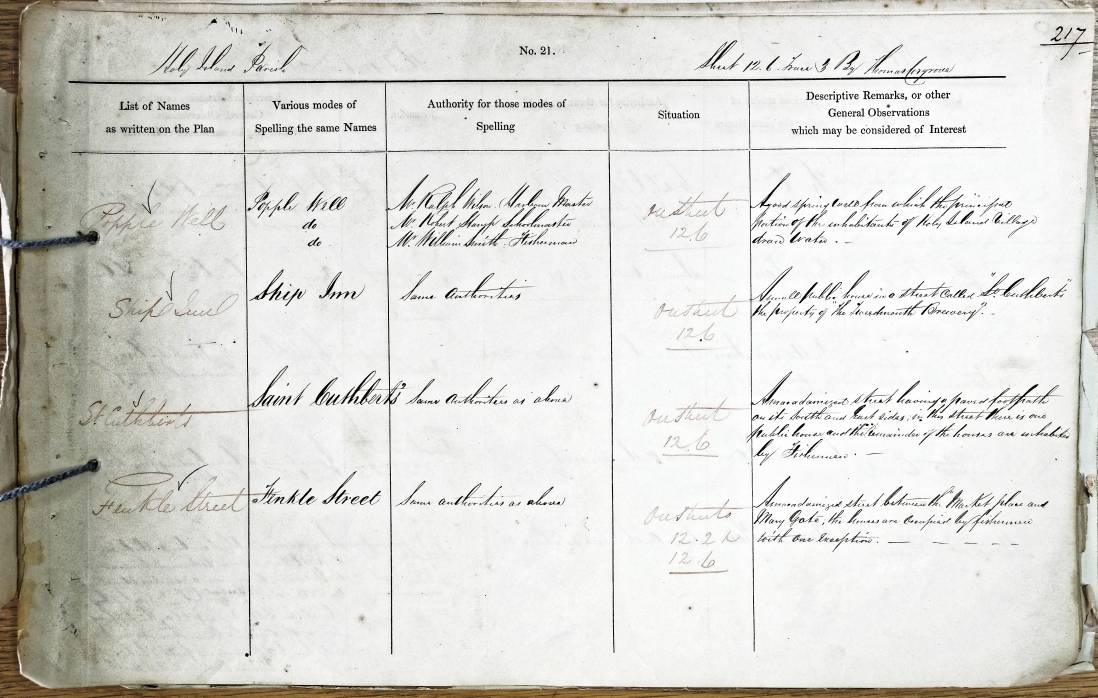 217
Holy Island Parish
No. 21.
Sheet 12.6 Trace 3 By Thomas Cosgrove
List of Names
as written on the Plan
Various modes of
Spelling the same Names
Authority for those modes of
Spelling
Situation
Descriptive Remarks, or other
General Observations
which may be considered of Interest
Popple Well
Popple Well
do
do
Mr. Ralph Wilson Harbour Master
Mr. Robert Stamp Schoolmaster
Mr William Smith Fisherman
On Sheet
12.6
A good spring well from which the principal
portion of the inhabitants of Holy Island Village
draw Water. -
Ship Inn
Ship Inn
Same Authorities
On Sheet
12.6
A small public house in a street called "St Cuthbert's"
the property of "the Tweedmouth Brewery". -
St Cuthberts
Saint Cuthbert's
Same Authorities as above
On Sheet
12.6
A macadamized street having a paved footpath
on its South and East sides, in this street there is one
public house and the remainder of the houses are inhabited
by Fishermen. -
Fenkle Street
Finkle Street
Same authorities as above
On Sheets
12.2 &
12.6
A macadamized street between the Market place and
Mary Gate, the houses are occupied by fishermen
with one exception. -